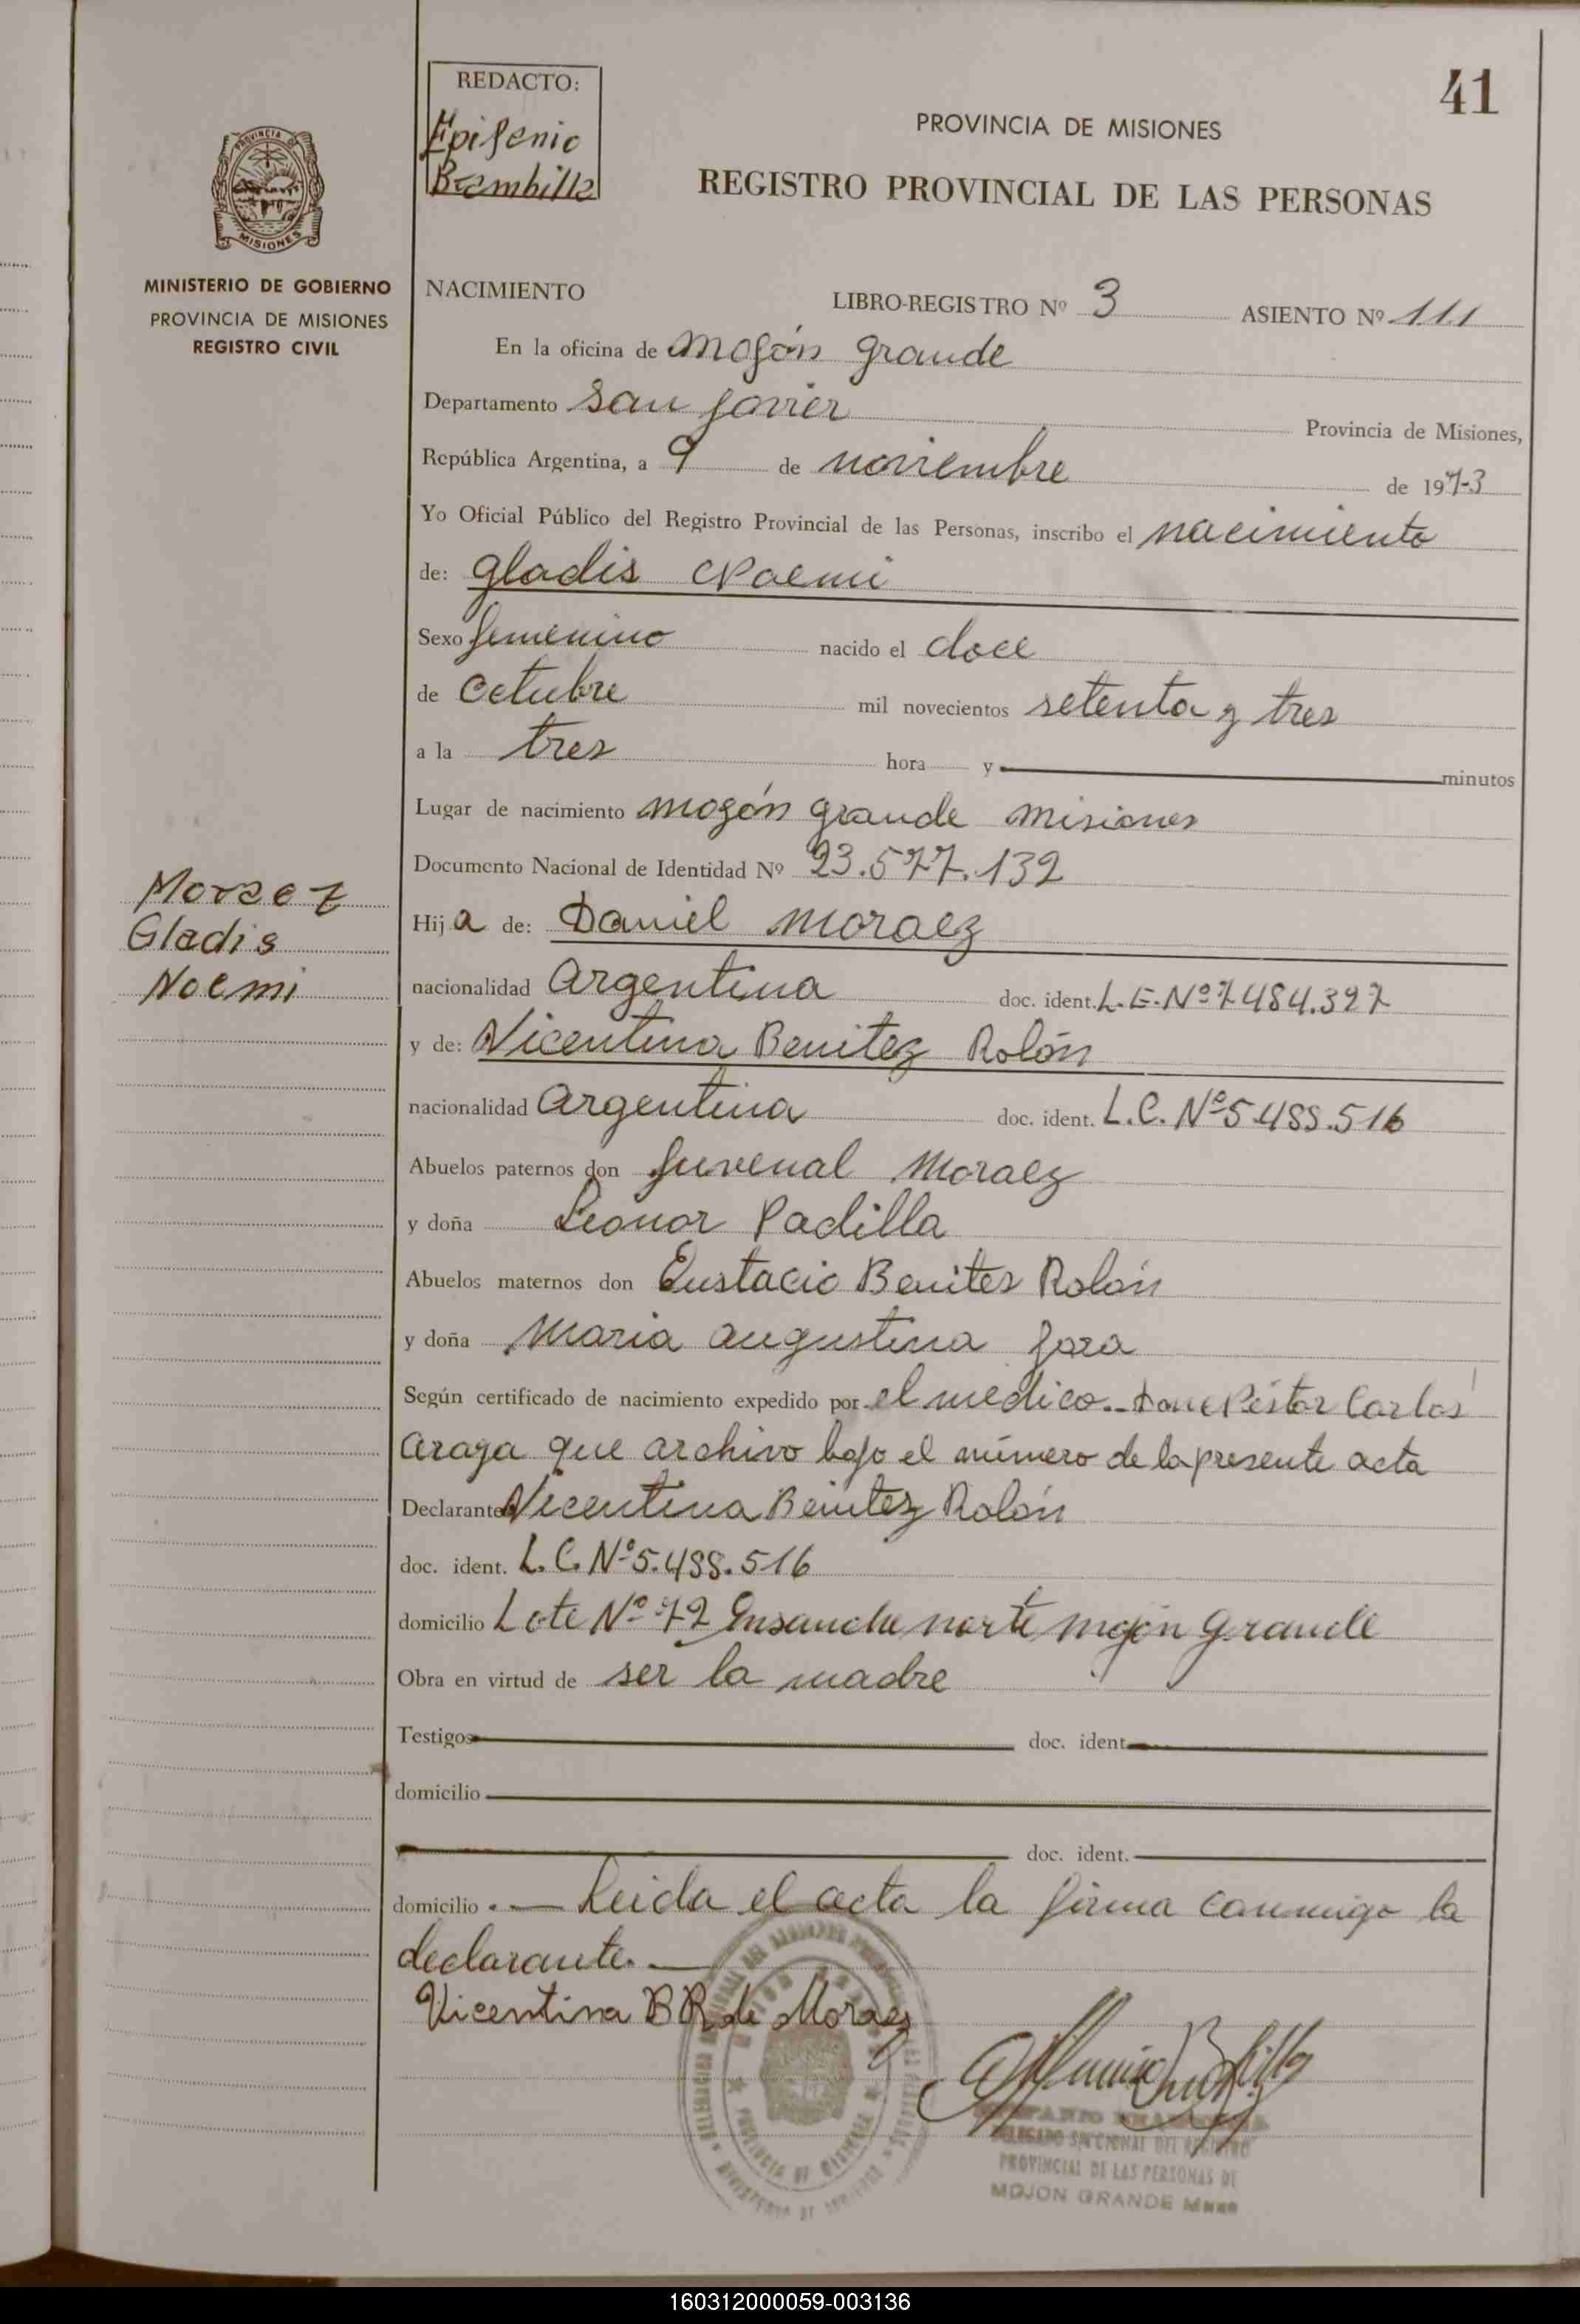 41
REDACTO:
Epifenio
Brambilla
PROVINCIA DE MISIONES
REGISTRO PROVINCIAL DE LAS PERSONAS
PROVINCIA
MISIONES
MINISTERIO DE GOBIERNO
PROVINCIA DE MISIONES
REGISTRO CIVIL
NACIMIENTO LIBRO-REGISTRO Nº 3 ASIENTO Nº 111
En la oficina de Mojón grande
Departamento San Javier Provincia de Misiones,
República Argentina, a 9 de noviembre de 1973
Yo Oficial Público del Registro Provincial de las Personas, inscribo el nacimiento
de: Gladis Noemi
Sexo femenino nacido el doce
de octubre mil novecientos setenta y tres
a la tres hora y minutos
Lugar de nacimiento Mojón grande Misiones
Documento Nacional de Identidad Nº 23.577.132
Moraez
Gladis
Noemi
Hija de: Daniel Moraez
nacionalidad Argentina doc. ident. L.E.Nº 7484.397
y de: Vicentina Benitez Rolón
nacionalidad Argentina doc. ident. L.C. Nº 5.488.516
Abuelos paternos don Juvenal Moraez
y doña Leonor Padilla
Abuelos maternos don Eustacio Benites Rolón
y doña Maria Augustina Jara
Según certificado de nacimiento expedido por el medico.- Don Néstor Carlos
Araya que archivo bajo el número de la presente acta
Declarante Vicentina Benitez Rolón
doc. ident. L.C. Nº 5.488.516
domicilio Lote Nº 72 Ensanche norte Mojón Grande
Obra en virtud de ser la madre
Testigos doc. ident.
domicilio
doc. ident.
domicilio .— Leida el acta la firma conmigo la
declarante.—
Vicentina B R de Moraez
DELEGADO SECCIONAL DEL REGISTRO
PROVINCIAL DE LAS PERSONAS DE
MOJON GRANDE Mnes
160312000059-003136